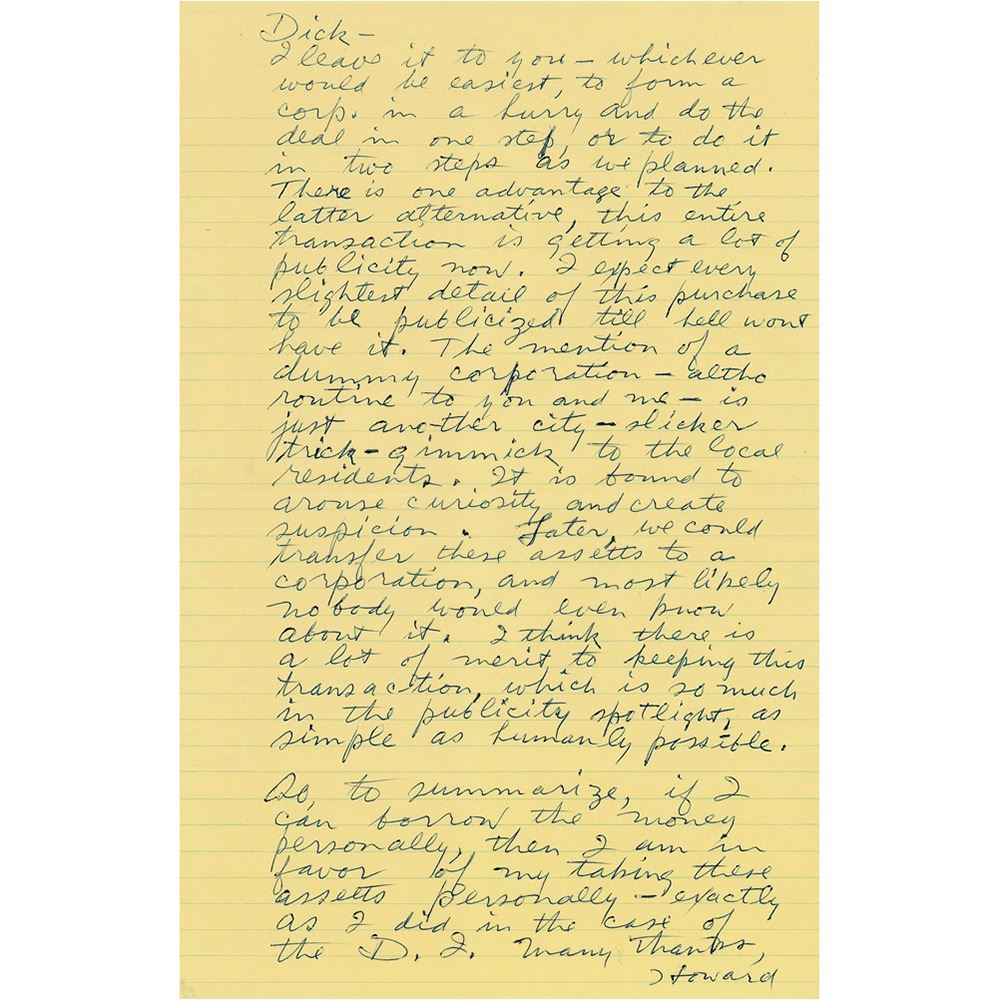 Dick –
I leave it to you – whichever
would be easiest, to form a
corp. in a hurry and do the
deal in one step, or to do it
in two steps as we planned.
There is one advantage to the
latter alternative, this entire
transaction is getting a lot of
publicity now. I expect every
slightest detail of this purchase
to be publicized till hell wont
have it. The mention of a
dummy corporation – altho
routine to you and me – is
just another city-slicker
trick-gimmick to the local
residents. It is bound to
arouse curiosity and create
suspicion. Later, we could
transfer these assetts to a
corporation, and most likely
nobody would even know
about it. I think there is
a lot of merit to keeping this
transaction, which is so much
in the publicity spotlight, as
simple as humanly possible.
So, to summarize, if I
can borrow the money
personally, then I am in
favor of my taking these
assetts personally – exactly
as I did in the case of
the D. I. Many thanks,
Howard